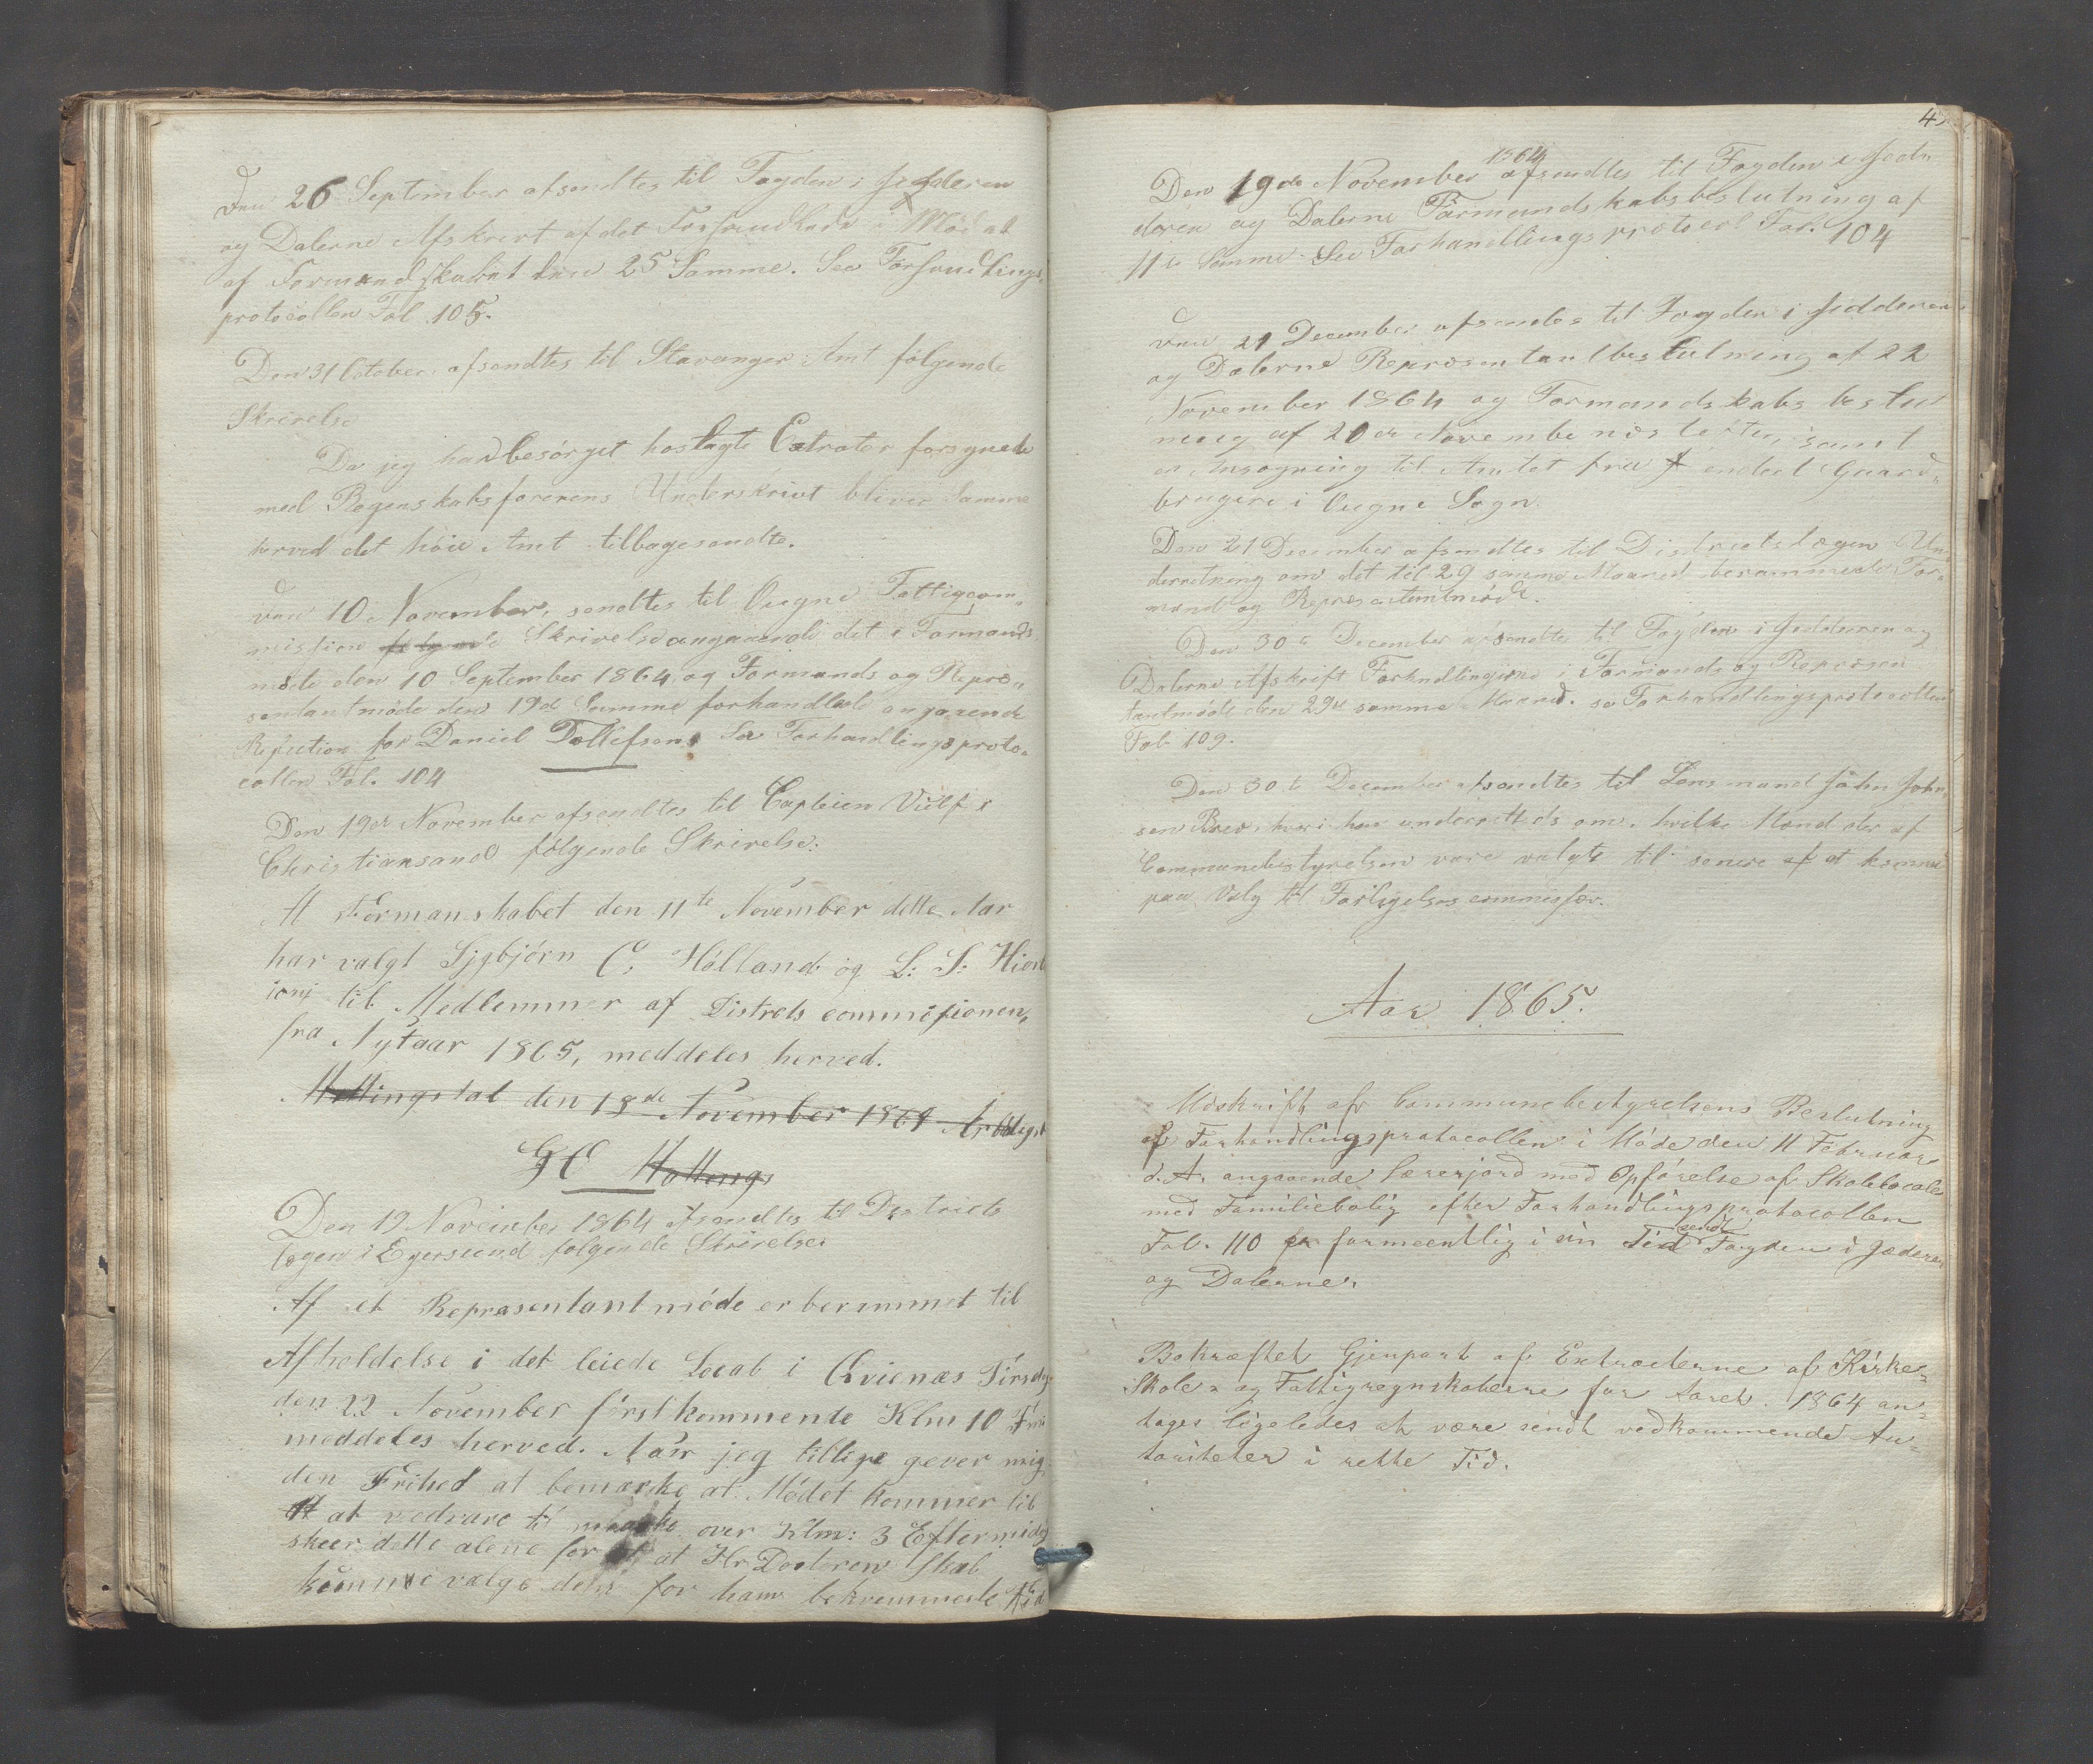 Den 26 September afsendtes til Fogden i Jedderen
og Dalerne Afskrivt af det Forhandlede i Mød
af Formandskabet den 25 Samme. See Forhandlings
protocollen Fol. 105.
Den 31 October afsendtes til Stavanger Amt følgende
Skrivelse
Da jeg har besørget hoslagte Extrater forsynede
med Regenskabsførerens Underskrivt bliver Samme
herved det höie Amt tilbagesendte.
Den 10 November, sendtes til Ougne Fattigcom„
mission følgende Skrivelse angaaende det i Formands
møde den 10 September 1864 og Formands og Repræ„
sentantmøde den 19de Samme forhandlede angaaende
for Daniel Tollefsen. See Forhandlingsproto„
collen Fol. 104
Den 19de November afsendtes til Captein i
Christiansand følgende Skrivelse:
At Formanskabet den 11te November dette Aar
har valgt Sigbjörn C. Hölland og L: S:
til Medlemmer af Distrets commisionen,
fra Nytaar 1865, meddeles herved.
den 18de November 1864
G C
Den 19 November 1864 afsendtes til Districts
lægen i Egersund følgende Skrivelse.
Af et Repræsentantmöde er berammet til
Afholdelse i det leiede Local i Qvienæs Tirsdag
den 22 November förstkommente Klm 10
meddeles herved. Naar jeg tillige gever mig
den Frihed at bemærke at Mödet kommer til
at vedvare til over Klm: 3 Eftermidg
skeer dette alene for at Hr Doctoren Skal
kunne vælge den for ham beqvemmeste Tid
4
1864
Den 19de November afsendtes til Fogden i Jed„
deren og Dalerne Formandskabsbeslutning af
11te Samme. See Forhandlingsprotocol Fol. 104
Den 21 December afsendes til Fogden i Jedderen
og Dalerne Repræsentantbeslutning af 22
November 1864 og Formandskabs beslut
ning af 20de November næstefter, samt
en Ansøgning til Amtet fra endeel Gaard„
brugere i Ougne Sogn.
Den 21 December afsendtes til Districtslægen Un„
derretning om det til 29 samme Maaned berammede For„
mand og Repræsentantmøde.
Den 30te December afsendtes til Fogden i Jedderen og
Dalerne Afskrift Forhandlingerne i Formands og Repræsen
tantmøde den 29de samme Maaned. se Forhandlingsprotocollen
Fol. 109.
Den 30te December afsendtes til Lensmand John John„
sen Brev, hvori han underretteds om, hvilke Mænd der af
Communebestyrelsen vare valgte til senere af at komme
paa Valg til Forligelsescommissær.
Aar 1865.
Udskrift af Communebestyrelsens Beslutning
af Forhandlingsprotocollen i Møde den 11 Februar
d. A. angaaende Lærerjord med Opførelse af Skolelocale
med Familiebolig efter Forhandlingsprotocollen
Fol. 110 er formeentlig i sin Tid sendt Fogden i Jæderen
og Dalerne.
Bekræftet Gjenpart af Extracterne af Kirke=
Skole= og Fattigregnskaberne for Aaret 1864 an=
tages ligeledes at være sendt vedkommende Au=
toriteter i rette Tid.